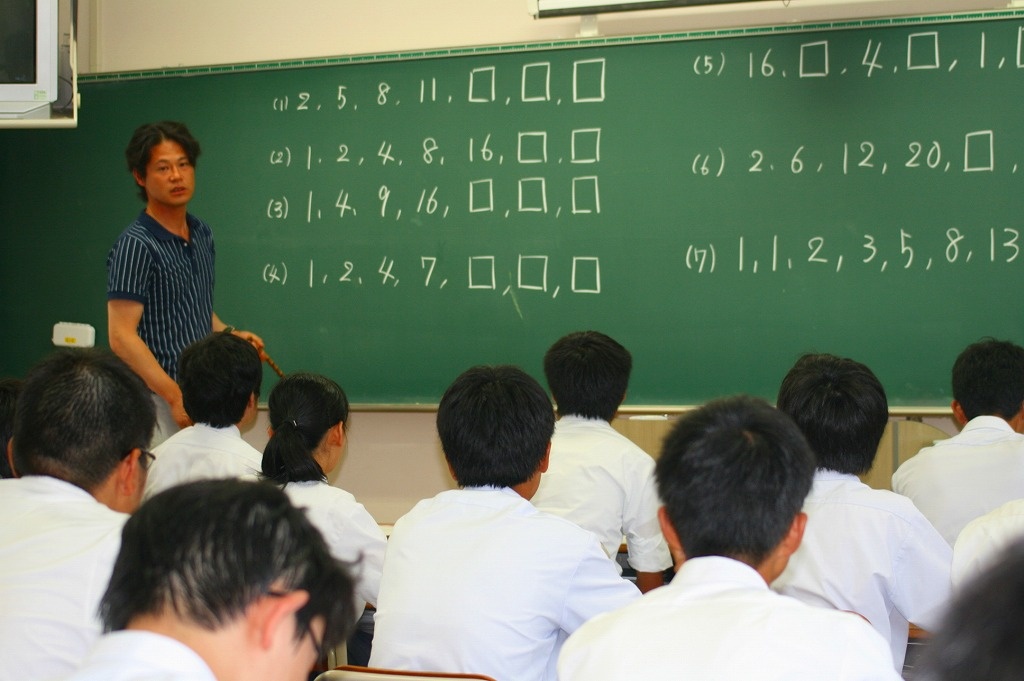 (1) 2, 5, 8, 11, □, □, □
(2) 1, 2, 4, 8, 16, □, □
(3) 1, 4, 9, 16, □, □, □
(4) 1, 2, 4, 7, □, □, □
(5) 16, □, 4, □, 1, □
(6) 2, 6, 12, 20, □,
(7) 1, 1, 2, 3, 5, 8, 13